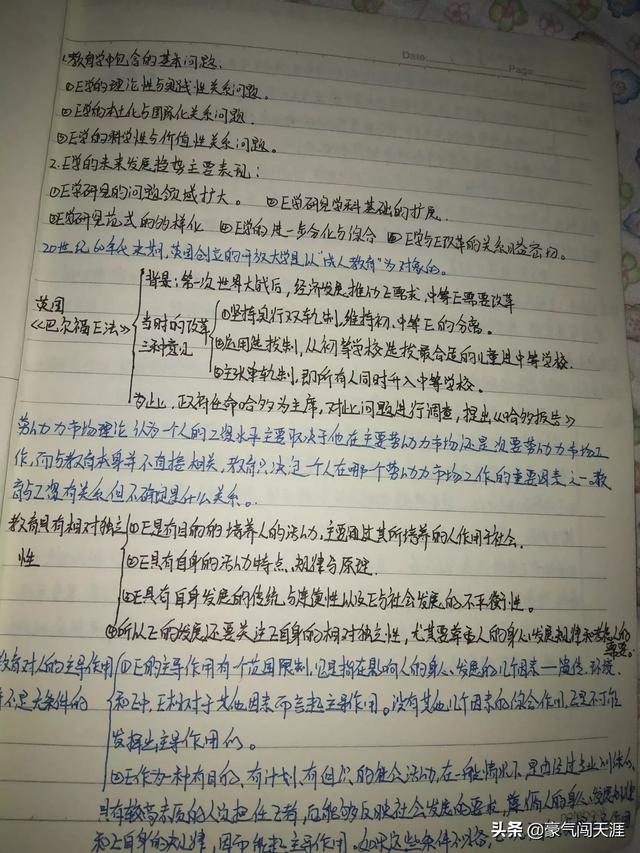 Date:
Page:
1.教育学中包含的基本问题.
①E学的理论性与实践性关系问题。
②E学的本土化与国际化关系问题.
③E学的科学性与价值性关系问题。
2.E学的未来发展趋势主要表现:
①E学研究的问题领域扩大。 ②E学研究学科基础的扩展.
③E学研究范式的多样化 ④E学的进一步分化与综合 ⑤E学与E改革的关系日益密切。
20世纪60年代末期,英国创立的开放大学是以"成人教育"为对象的。
背景:第一次世界大战后,经济发展推动E要求,中等E需要改革
英国
《巴尔福E法》
当时的改革
三种意见
①坚持实行双轨制,维持初、中等E的分离。
②运用选拔制,从初等学校选拔最合适的儿童进中等学校.
③主张单轨制,即所有人同时升入中等学校。
为此,政府任命哈多为主席,对此问题进行调查,提出《哈多报告》
劳动力市场理论 认为一个人的工资水平主要取决于他在主要劳动力市场还是次要劳动力市场工
作,而与教育本身并不直接相关,教育只决定个人在哪个劳动力市场工作的重要因素之一。教
育与工资有关系但不确定是什么关系。
教育具有相对独立
性
①E是有目的的培养人的活动,主要通过其所培养的人作用于社会.
②E具有自身的活动特点、规律与原理.
③E具有自身发展的传统与连续性以及E与社会发展的不平衡性。
④所以E的发展还要关注E自身的相对独立性,尤其要尊重人的身心发展规律和
教育对人的主导作用
不是无条件的
①E的主导作用有个范围限制,它是指在影响人的身心发展的几个因素——遗传、环境、
和E中,E相对于其他因素而言起主导作用。没有其他几个因素的综合作用,E是不可能
发挥出主导作用的。
②E作为一种有目的、有计划、有组织的社会活动,在一般情况下,是由经过专业训练、
具有较高素质的人员担任E者,E能够反映社会发展的要求,遵循人的身心发展
和E自身的规律,因而能起主导作用。如果这些条件不具备,
头条 @豪气闯天涯